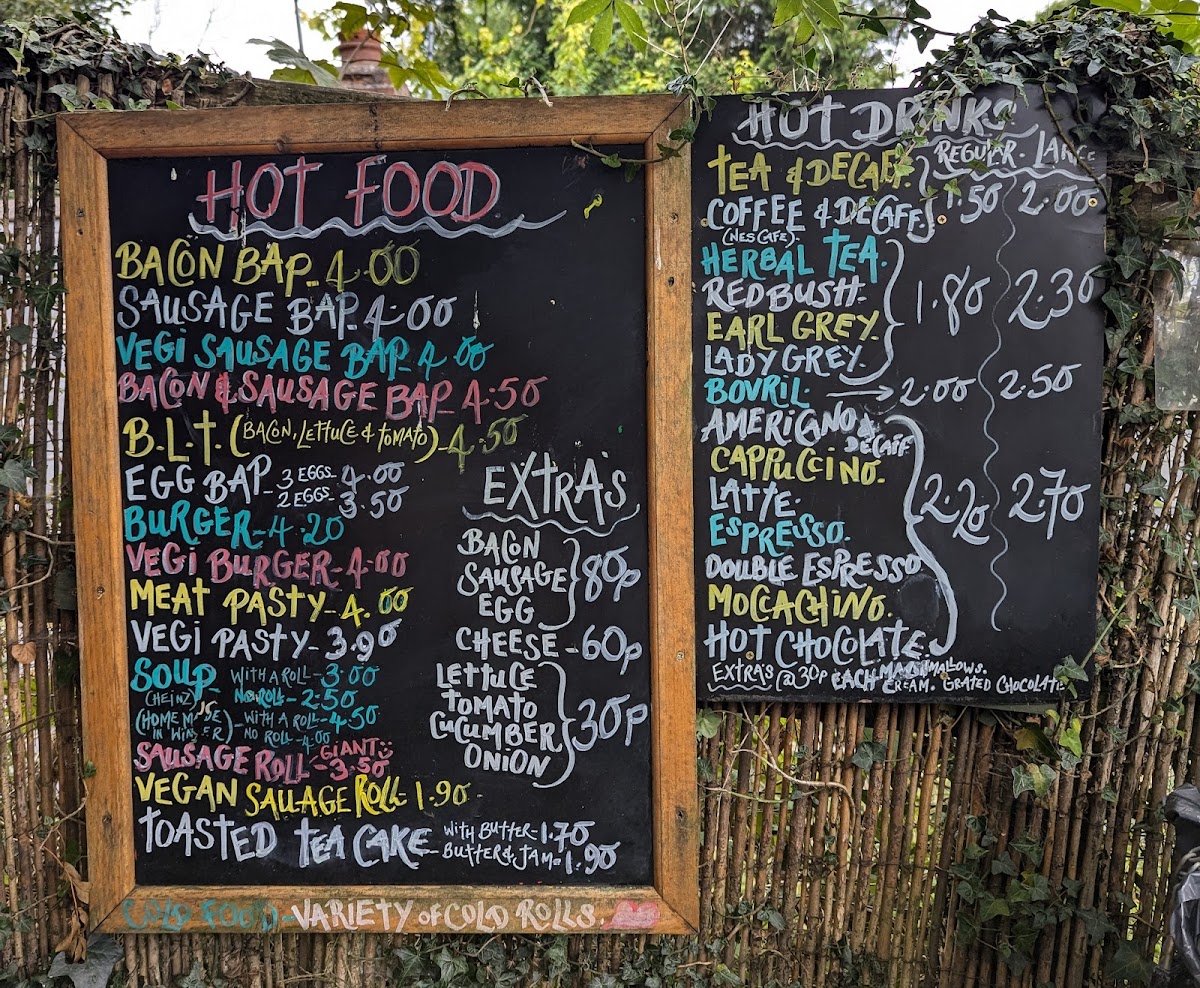 HOT FOOD
BACON BAP - 4.00
SAUSAGE BAP - 4.00
VEGI SAUSAGE BAP - 4.00
BACON & SAUSAGE BAP - 4.50
B.L.T. (BACON, LETTUCE & TOMATO) - 4.50
EGG BAP - 3 EGGS - 4.00
2 EGGS - 3.50
BURGER - 4.20
VEGI BURGER - 4.00
MEAT PASTY - 4.00
VEGI PASTY - 3.90
SOUP - WITH A ROLL - 3.00
(HEINZ) NO ROLL - 2.50
(HOME MADE IN WINTER) - WITH A ROLL - 4.50
NO ROLL - 4.00
SAUSAGE ROLL - GIANT 3.50
VEGAN SAUSAGE ROLL - 1.90
TOASTED TEA CAKE - WITH BUTTER - 1.70
BUTTER & JAM - 1.90
EXTRA'S
BACON
SAUSAGE 80p
EGG
CHEESE - 60p
LETTUCE
TOMATO
CUCUMBER 30p
ONION
COLD FOOD - VARIETY OF COLD ROLLS.
HOT DRINKS
REGULAR. LARGE
TEA & DECAF.
COFFEE & DECAFF. 1.50 2.00
(NESCAFE).
HERBAL TEA.
REDBUSH. 1.80 2.30
EARL GREY.
LADY GREY.
BOVRIL. → 2.00 2.50
AMERICANO & DECAFF
CAPPUCCINO.
LATTE. 2.20 2.70
ESPRESSO.
DOUBLE ESPRESSO
MOCCACHINO.
HOT CHOCOLATE.
EXTRA'S @ 30p EACH MARSHMALLOWS.
CREAM. GRATED CHOCOLATE